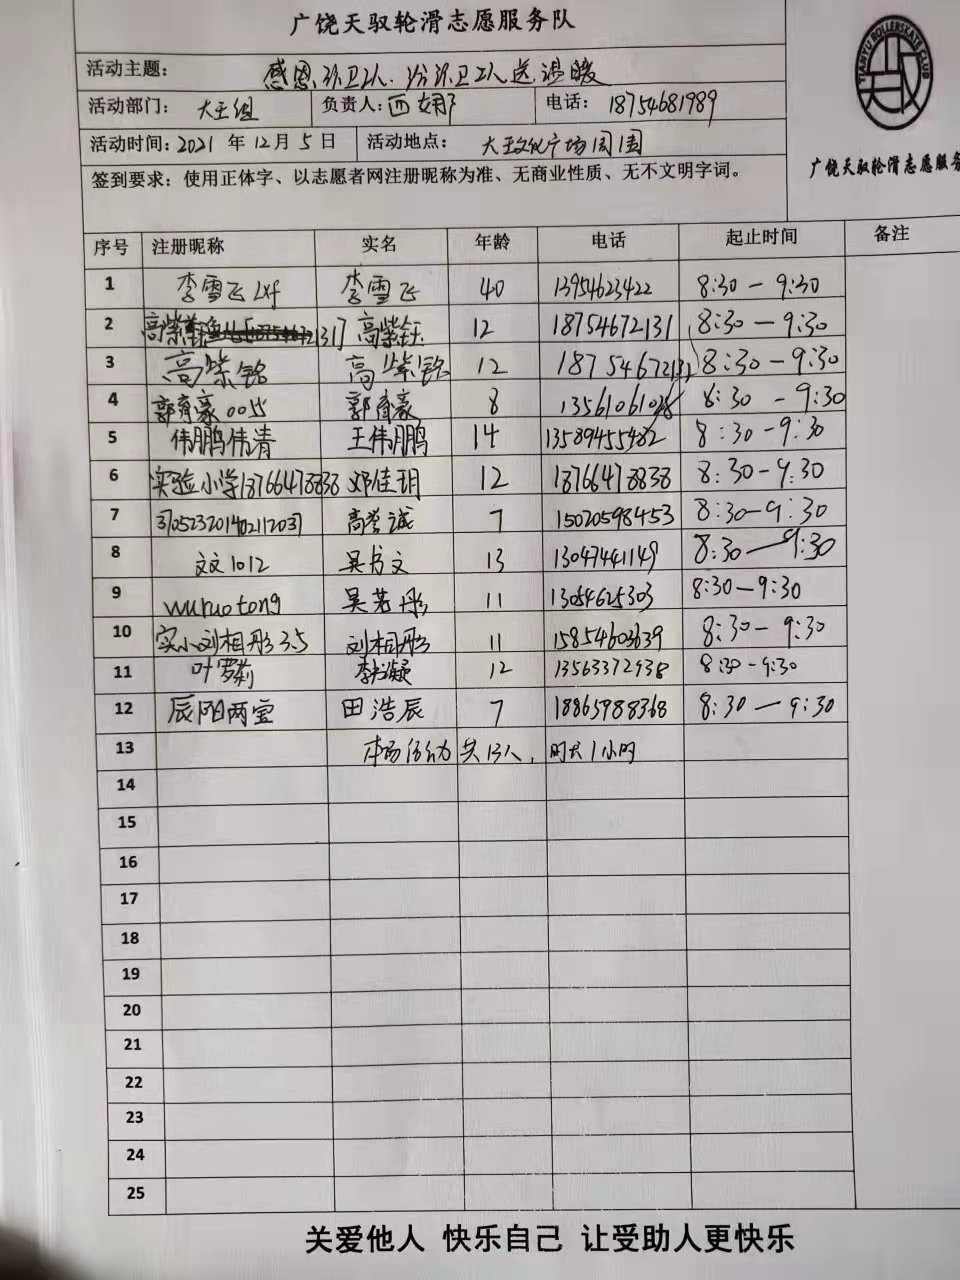 广饶天驭轮滑志愿服务队
TIANYU ROLLERSKATE CLUB
广饶天驭轮滑志愿服务
活动主题: 感恩环卫工人.给环卫工人送温暖
活动部门: 大王组 负责人: 西娜 电话: 18754681989
活动时间: 2021 年 12 月 5 日 活动地点: 大王文化广场周围
签到要求: 使用正体字、以志愿者网注册昵称为准、无商业性质、无不文明字词。
序号 注册昵称 实名 年龄 电话 起止时间 备注
1 李雪飞Lxf 李雪飞 40 13954623422 8:30-9:30
2 高紫钰 1317 高紫钰 12 18754672131 8:30-9:30
3 高紫铭 高紫铭 12 18754672131 8:30-9:30
4 郭育豪0055 郭育豪 8 13561061028 8:30-9:30
5 伟鹏伟清 王伟鹏 14 13589455482 8:30-9:30
6 实验小学18766478838 邓佳玥 12 18766478838 8:30-9:30
7 370523201402112037 高誉诚 7 15020598453 8:30-9:30
8 文文1012 吴书文 13 13047441149 8:30-9:30
9 wuruotong 吴若彤 11 13054625303 8:30-9:30
10 实小刘相彤3.5 刘相彤 11 15854603639 8:30-9:30
11 叶罗莉 李书凝 12 13563372938 8:30-9:30
12 辰阳两宝 田浩辰 7 18865988368 8:30-9:30
13 本场活动共13人,时长1小时
14
15
16
17
18
19
20
21
22
23
24
25
关爱他人 快乐自己 让受助人更快乐